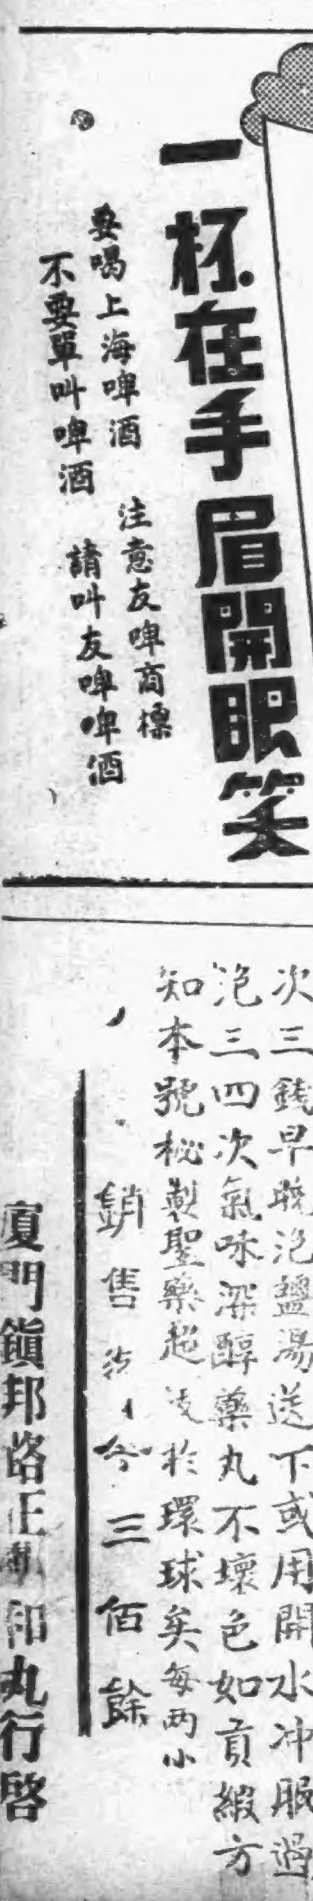 一杯在手眉開眼笑
要喝上海啤酒 注意友啤商標
不要單叫啤酒 請叫友啤啤酒
次三錢早晚泡鹽湯送下或用開水冲服過
泡三四次氣味深醇藥丸不壞色如貢緞方
知本號秘製聖藥超 於環球矣每两小
銷售 今三佰餘
廈門鎮邦路正 和丸行啓